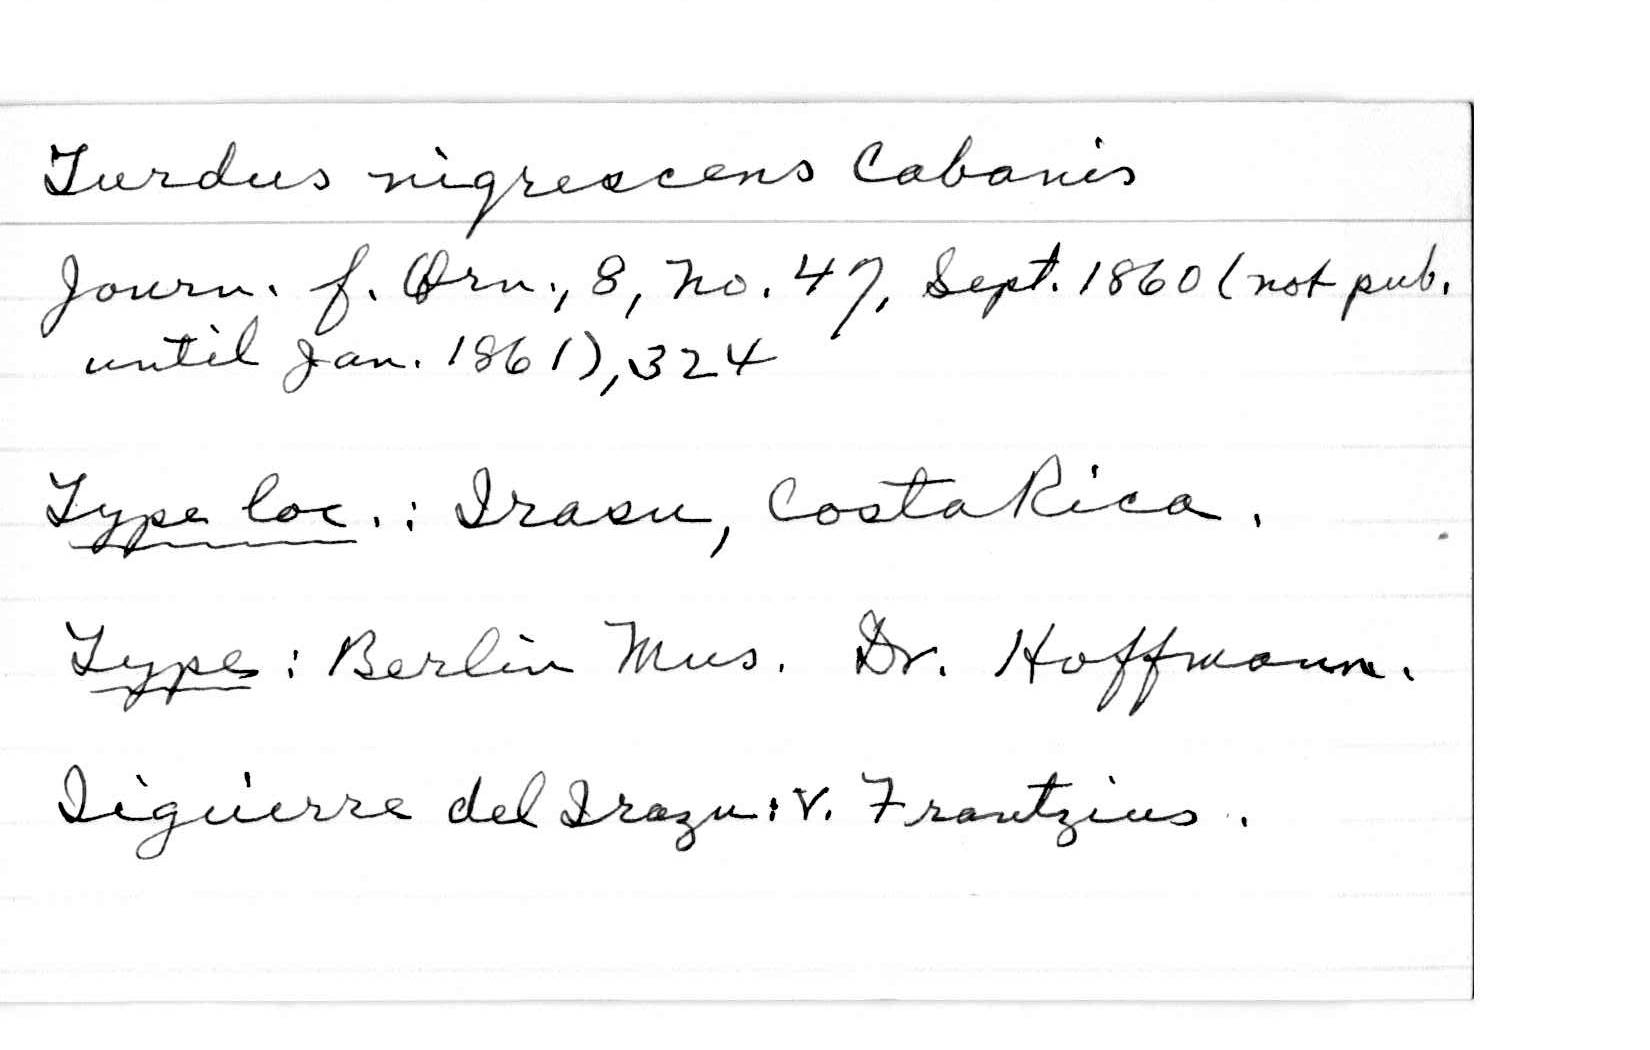 Turdus nigrescens Cabanis
Journ. f. Orn., 8, No. 47, Sept. 1860 (not pub.
until Jan. 1861), 324
Type loc. : Irasu, Costa Rica.
Type : Berlin Mus. Dr. Hoffmann.
del Irazu : v. Frantzius.